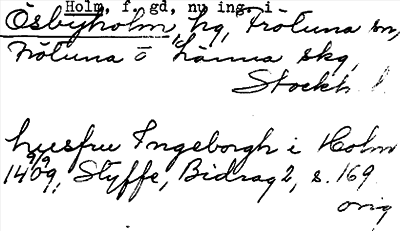 Holm, f. gd, nu ing. i
Ösbyholm, hg, Fröluna sn,
Fröluna o Länna skg,
Stockh. l.
husfru Ingeborgh i Holm
1409 9/9, Styffe, Bidrag 2, s. 169
orig